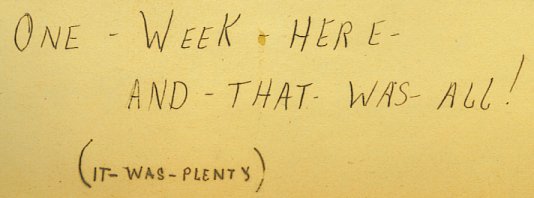 ONE - WEEK - HERE -
AND - THAT - WAS - ALL!
(IT - WAS - PLENTY)